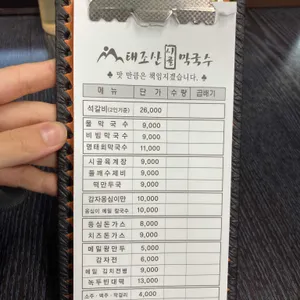 태조산 시골 막국수
♣ 맛 만큼은 책임지겠습니다. ♣
메 뉴 단 가 수 량 곱빼기
석갈비(2인기준) 26,000
물 막 국 수 9,000
비 빔 막 국 수 9,000
명태회막국수 11,000
시 골 육 계 장 9,000
들 깨 수 제 비 9,000
떡 만 두 국 9,000
감자옹심이만 10,000
옹심이 메밀 칼국수 10,000
등 심 돈 가 스 8,000
치 즈 돈 가 스 9,000
메 밀 왕 만 두 5,000
감 자 전 6,000
메밀 김치전병 9,000
녹 두 빈 대 떡 13,000
소주 · 맥주 · 막걸리 4,000